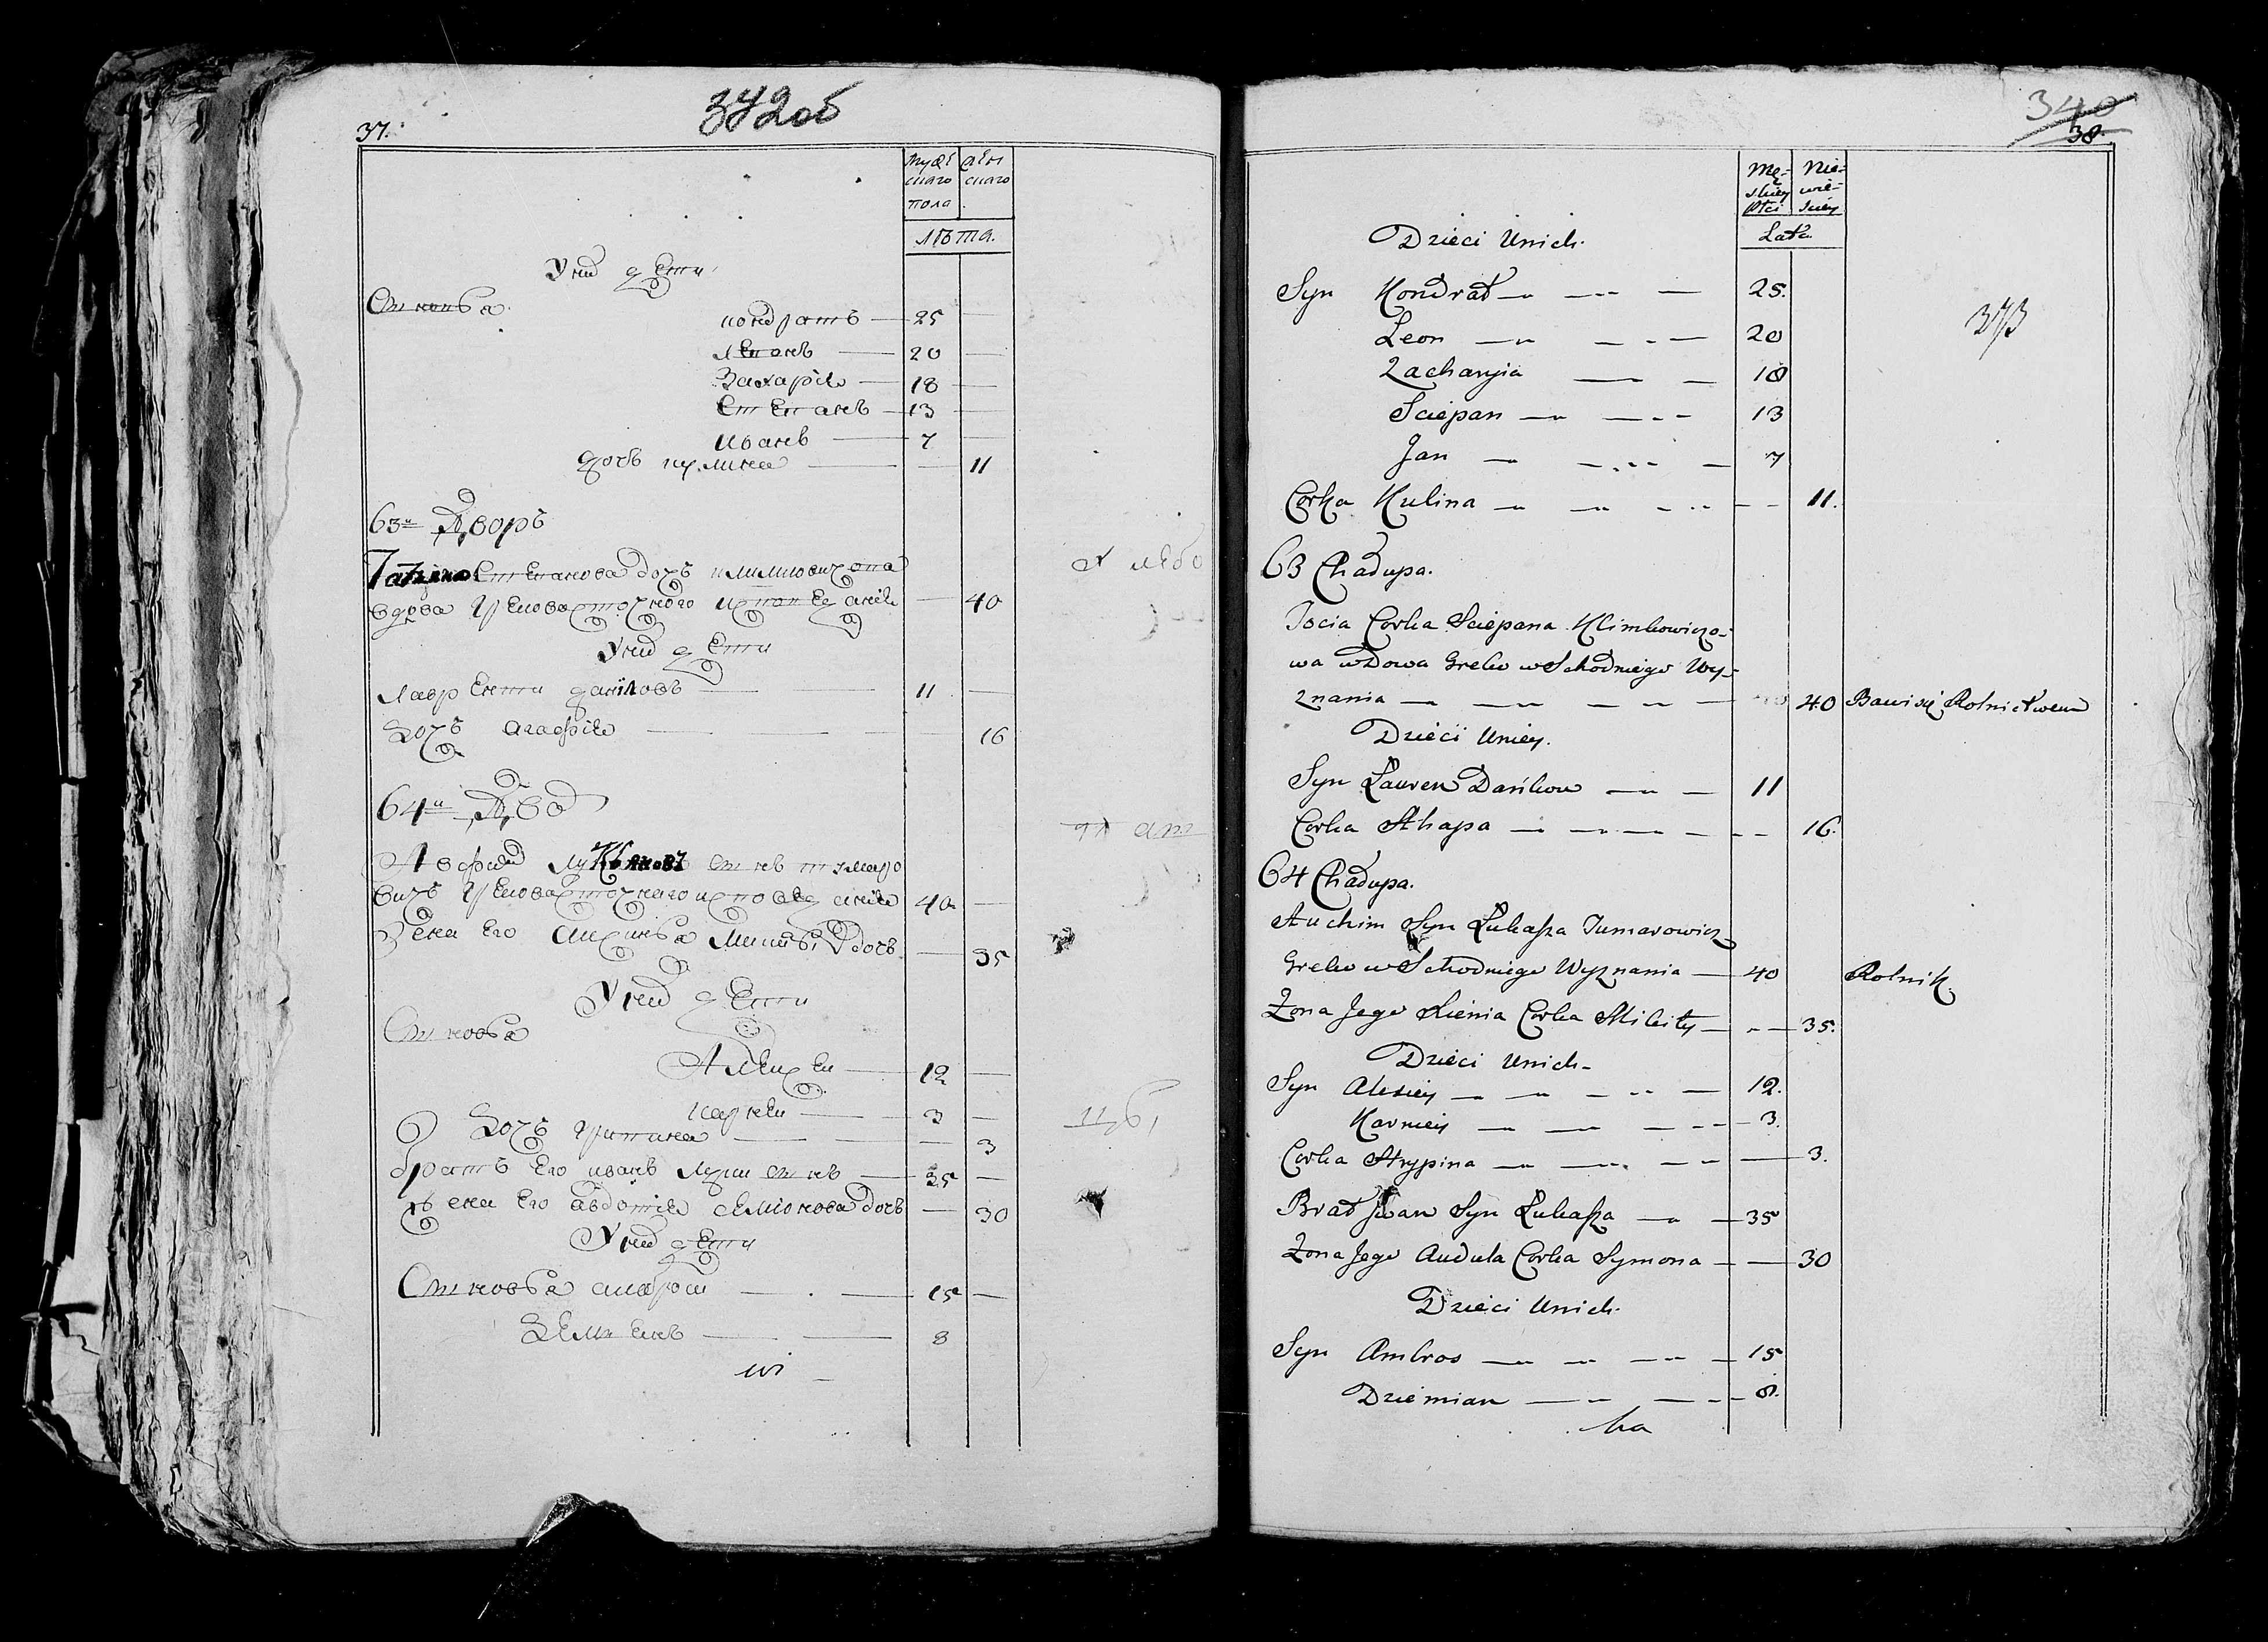 37.
342об
мужескаго пола
женскаго
лѣта.
У них дети
Сыновья
Кондратъ — 25 —
Леонъ — 20 —
Захарiй — 18 —
Степанъ — 13 —
Иванъ — 7 —
дочь Кулина — — 11
63й Дворъ
Татьяна Степанова дочь Климковичова
вдова Грековосточного исповедания — 40
У них дети
Лаврентий Данилов — 11 —
Дочь Агафия — 16
64й Двор
Лукьяновъ сынъ
вичъ Грековосточнаго исповедания 40 —
Жена его Аксинья Микиты дочь — 35
У них дети
Сыновья
Алексей — 12 —
Карней — 3 —
Дочь — 3
Братъ его Иванъ сынъ — 35 —
жена его Авдотия Семионова дочь — 30
У них дети
Сыновья Амброси — 15 —
Демиянъ — 8
340
38.
Męskiey Płci
Niewieściey
Lata.
373
Dzieci Unich.
Syn Kondrat — 25.
Leon — 20
Zacharyia — 18
Sciepan — 13
Jan — 7
Corka Kulina — 11.
63 Chałupa.
Tocia Corka Sciepana Klimkowiczo-
wa wdowa Greko wschodniego Wy-
znania — 40 Bawi się Rolnictwem
Dzieci Uniey.
Syn Łauren Daniłow — 11
Corka Ahapa — 16.
64 Chałupa.
Auchim Syn Łukasza Tumarowicz
Greko wschodniego Wyznania — 40 Rolnik.
Żona Jego Xienia Corka Mikity — 35.
Dzieci Unich.
Syn Alexiey — 12.
Karniey — 3.
Corka Hrypina — 3.
Brat Jwan Syn Łukasza — 35
Żona Jego Audula Corka Symona — 30
Dzieci Unich.
Syn Ambros — 15
Dziemian — 8.